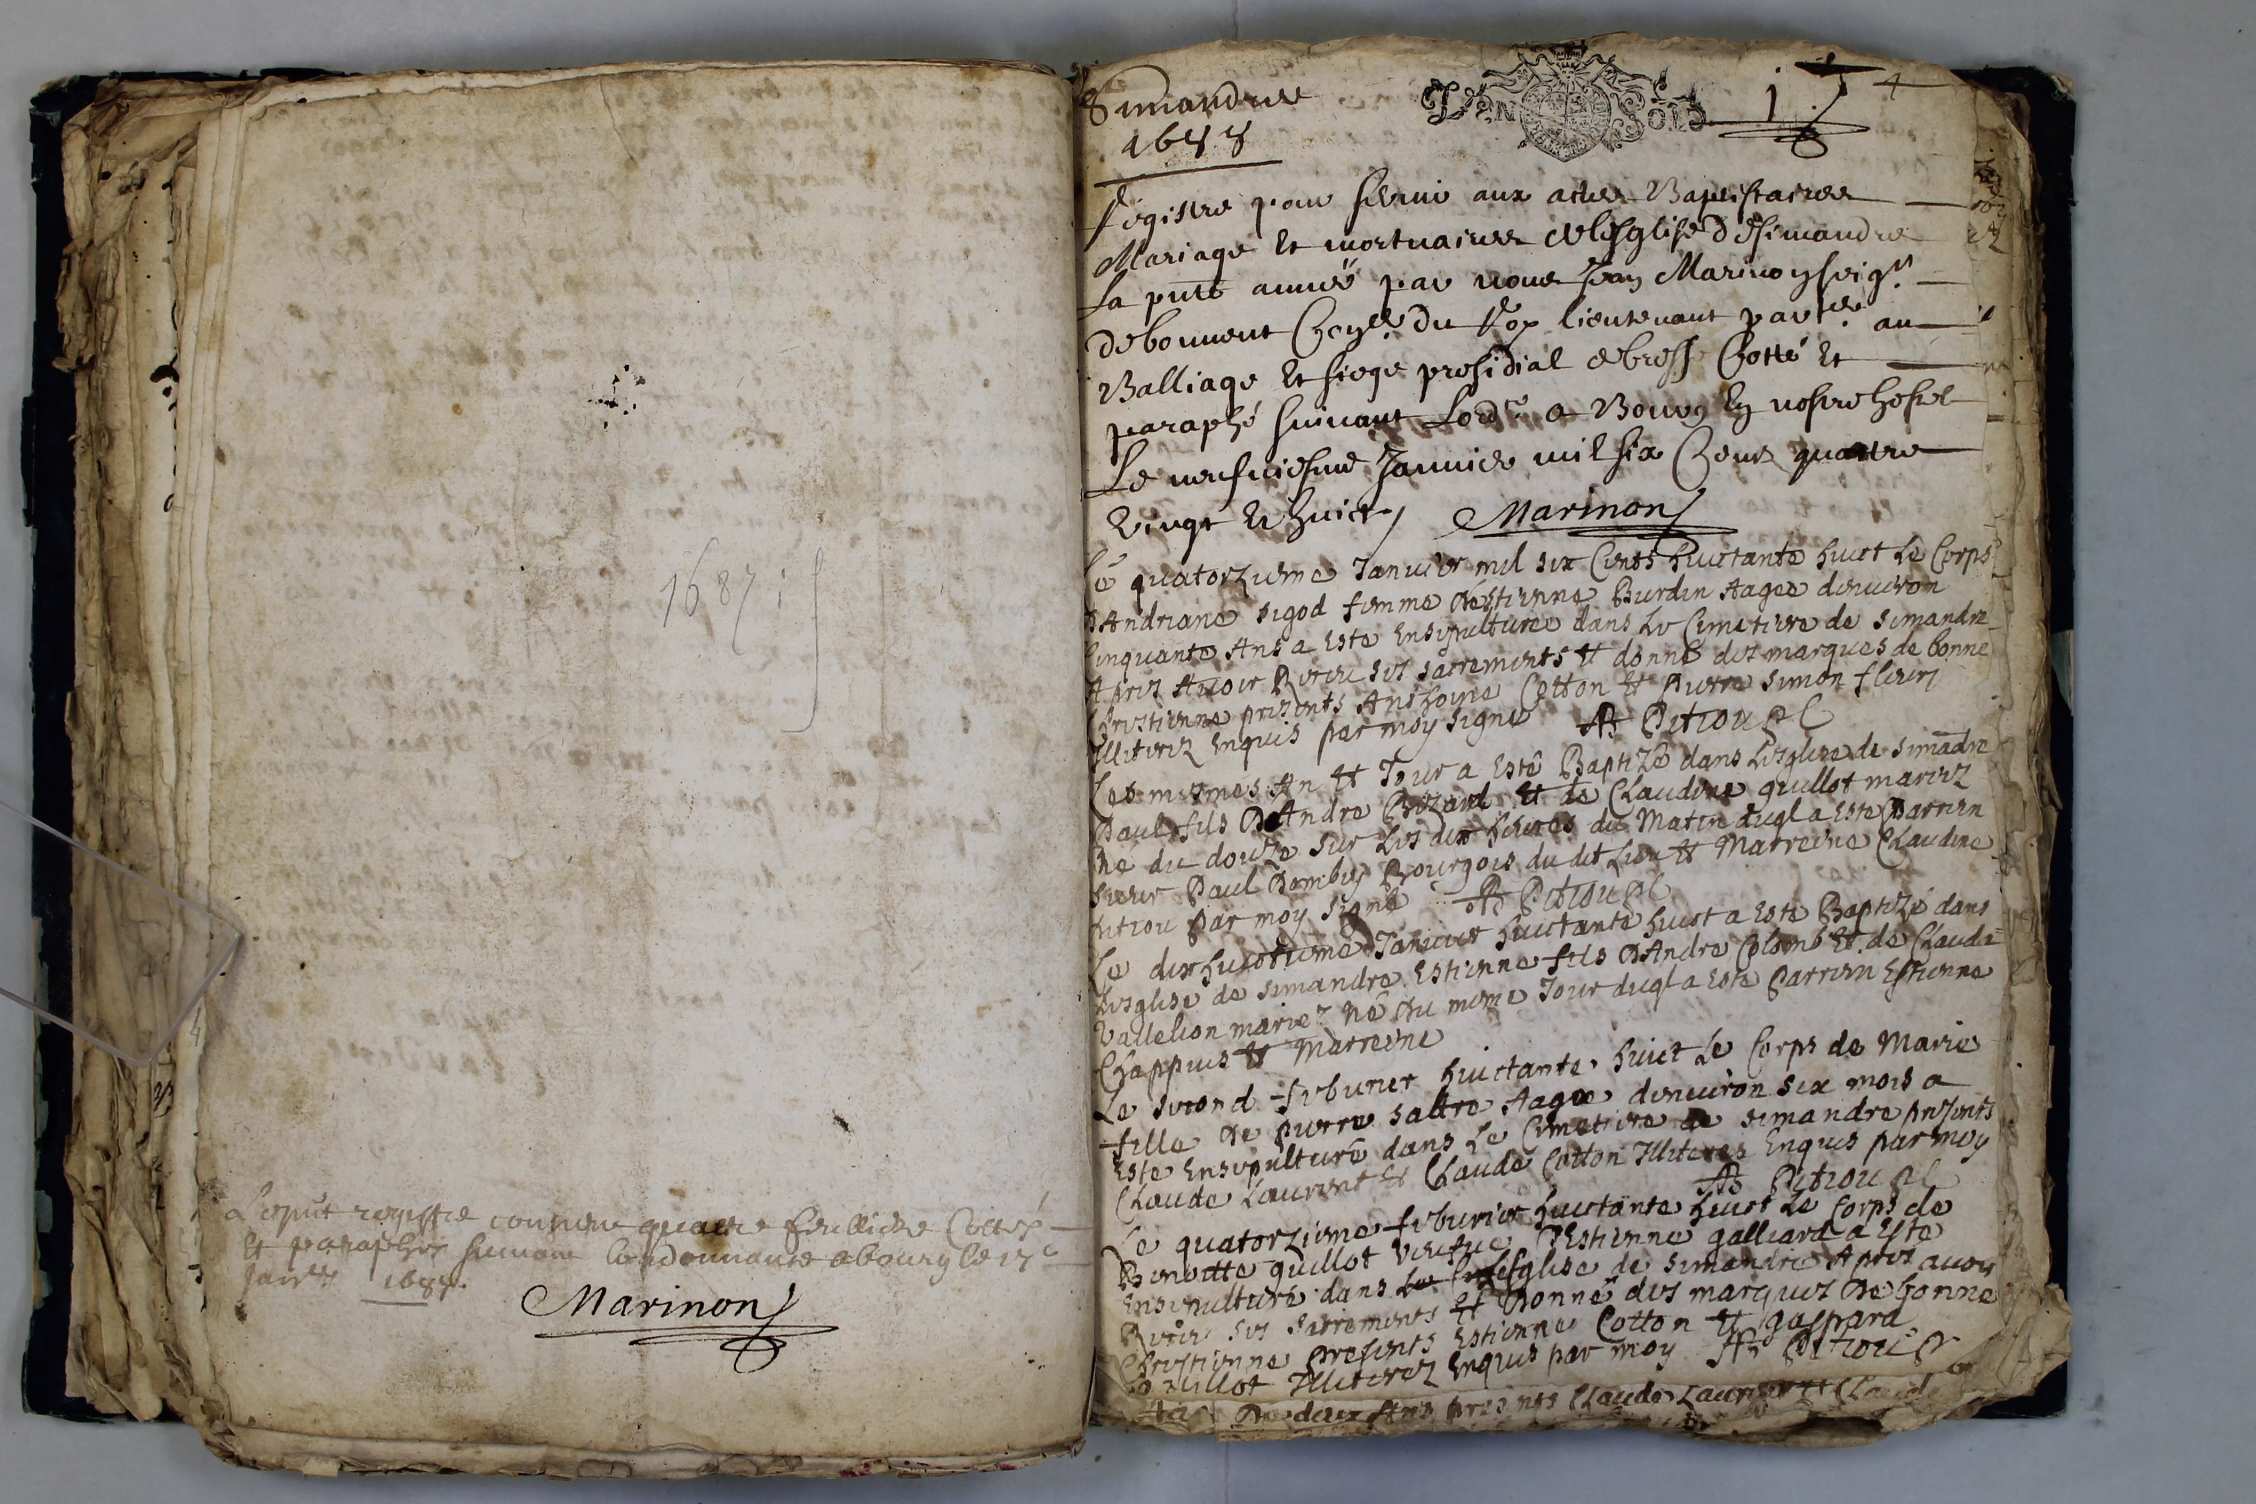 1687
Le pnt registre contenu quatre feulliets Cottés
Et paraphés suivant l'ordonnance a bourg le
Janvier
Marinon
Simandre
1688
UN SOLS
Registre pour servir aux actes Baptistaires
Mariage Et mortuaires de l'esglise de Simandre
La pnte année par nous Jean Marinon seigr
de bonnent Coner du Roy lieutenant parter au
Balliage Et siege presidial de bresse Cotté Et
paraphé suivant Lordce a Bourg En nostre hostel
Le neufviesme Janvier mil six Cents quattre
vingt Et huict Marinon
Le quatorzieme Janvier mil six Cents huictante huict Le Corps
D'Andriane sigod femme d'Estienne Burdin Aagee denviron
Cinquante Ans a Este Ensepulturee dans Le Cimetiere de simandre
Aprez Avoir Receu ses sacrements Et donné des marques de bonne
Chrestienne prezents Anthoine Cotton Et Pierre simon fleury
Illiterez Enquis par moy signé Petiou
Les mesmes An Et Jour a Esté Baptizé dans L'esglise de simãdre
Paul fils D'Andre Et de Claudine guillot mariez
Né du douze sur les dix heures du Matin duql a Este Parrein
sieur Paul Bourgois du dit Lieu Et Marreine Claudine
par moy signé Petiou
Le dixhuictieme Janvier huictante huict a Este Baptizé dans
L'esglise de simandre Estienne fils D'Andre Colomb Et de Clauda
mariez Né Du meme Jour duql a Este Parrein Estienne
Chappuis Et Marreine
Le second febvrier huictante huict Le Corps de Marie
fille De pierre Aagee denviron six mois a
Este Ensepulturé dans Le Cimetiere de simandre prezents
Claude Laurent Et Claude Cotton Illiteres Enquis par moy
Petiou
Le quatorzieme febvrier huictante huict Le Corps de
Benoitte guillot veufve D'Estienne galliard a Este
Ensepulturé dans L'Esglise de simandre Aprez avoir
Receu ses sacrements Et Donné des marques De bonne
Chrestienne presents Estienne Cotton Et gaspard
guillot Illiterez Enquis par moy Petiou
De deux Ans presents Claude Laurent Et Claude